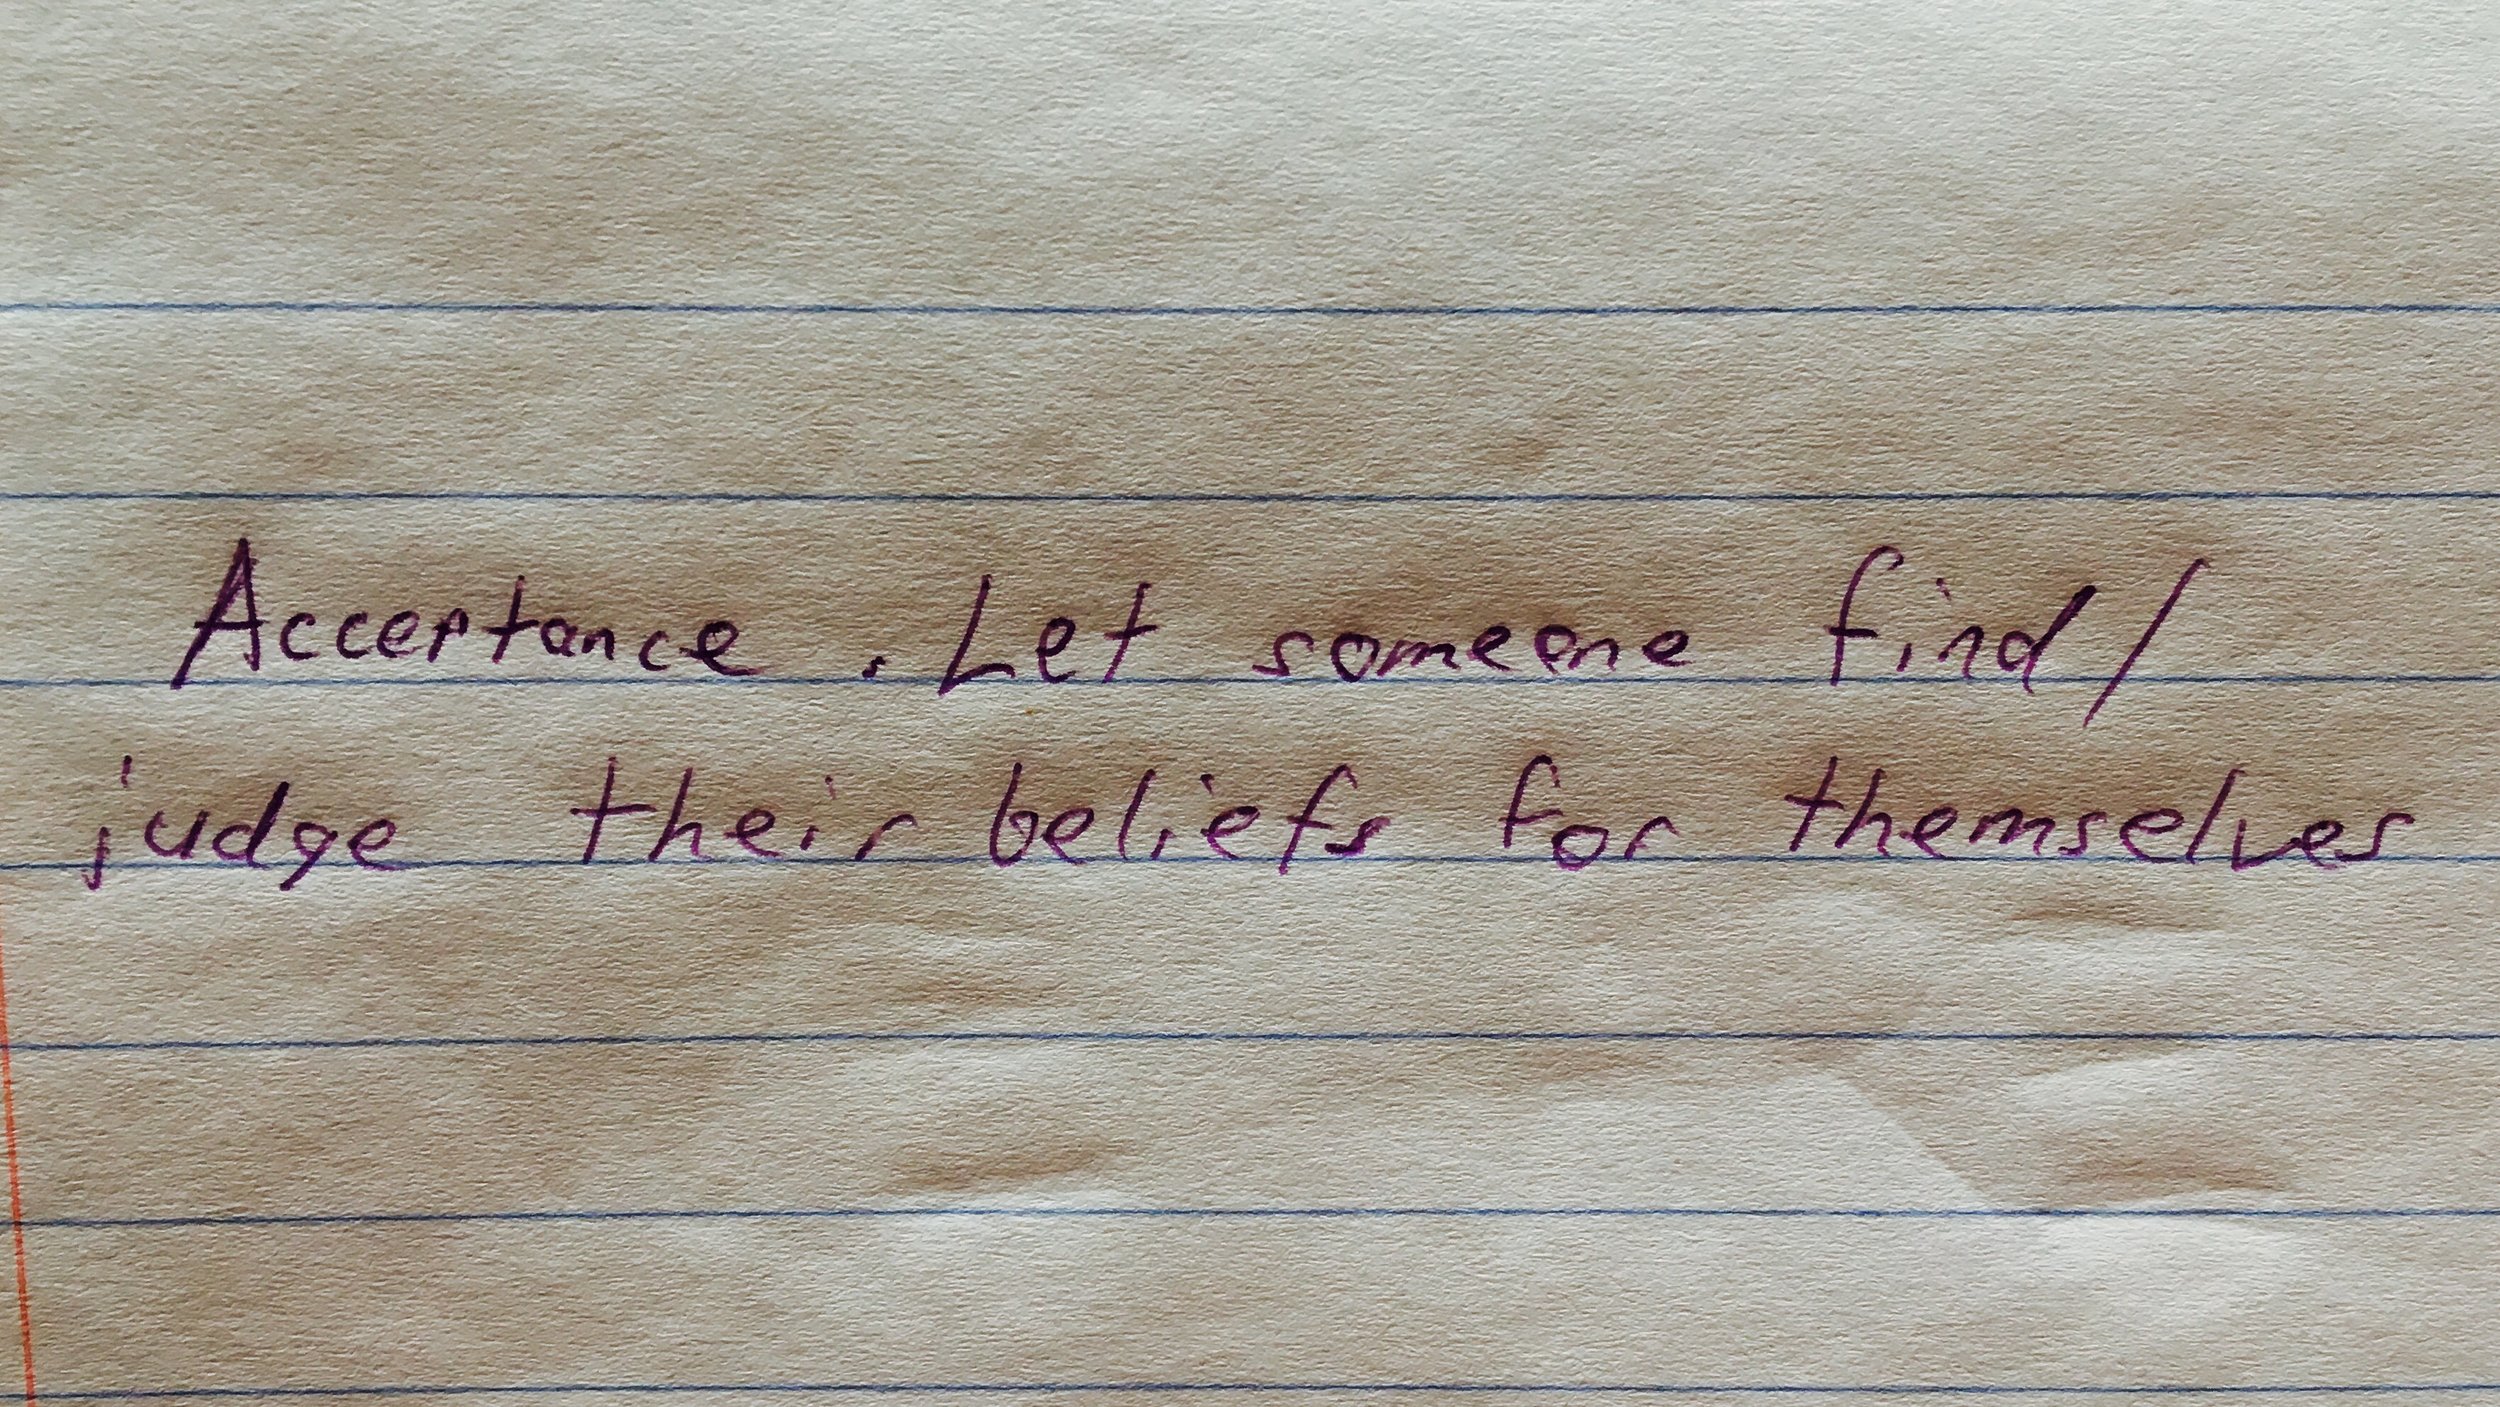 Acceptance. Let someone find/
judge their beliefs for themselves